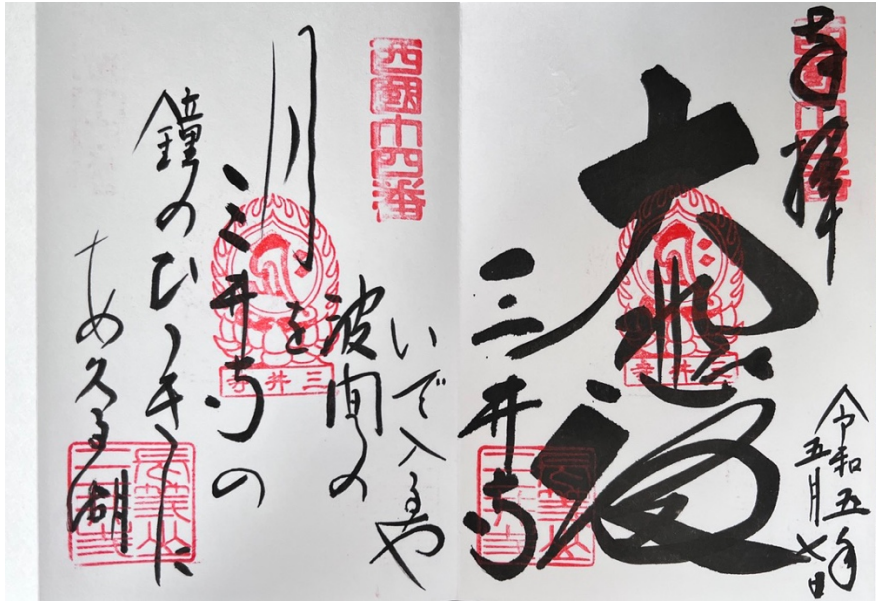 奉拝
西國十四番
大悲殿
三井寺
三井寺
令和五年
五月七日
西國十四番
いで入るや
波間の
月を
三井寺の
鐘のひゞきに
あくる湖
三井寺